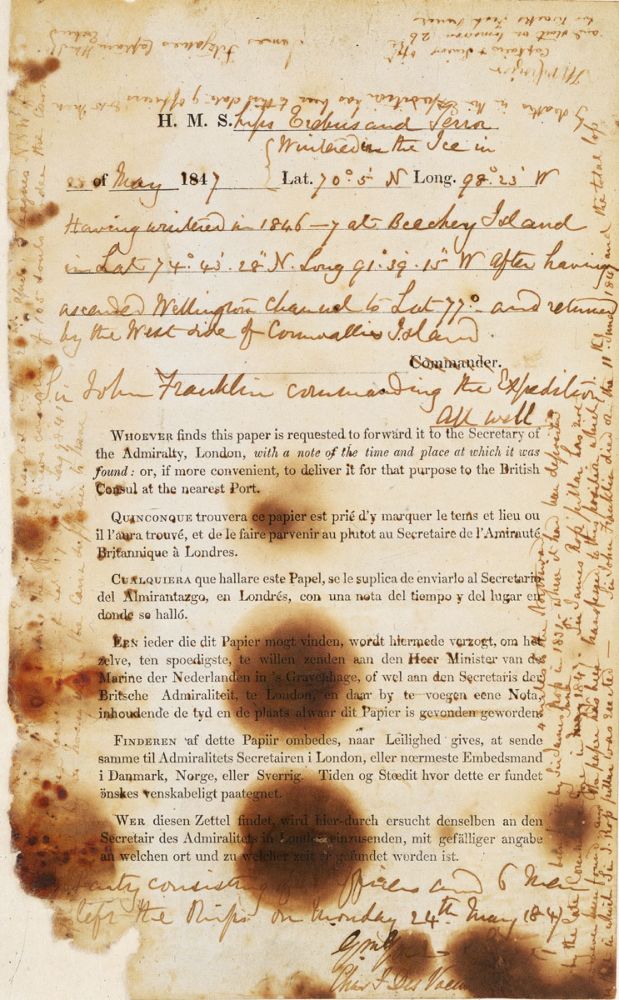 H. M. S. hips Erebus and Terror
Wintered in the Ice in
28 of May 1847 Lat. 70°. 5' N Long. 98°. 23' W
Having wintered in 1846–7 at Beechey Island
in Lat 74°. 43'. 28" N. Long 91°. 39'. 15" W After having
ascended Wellington Channel to Lat 77°. and returned
by the West side of Cornwallis Island.
Commander.
Sir John Franklin commanding the Expedition
All well
WHOEVER finds this paper is requested to forward it to the Secretary of
the Admiralty, London, with a note of the time and place at which it was
found: or, if more convenient, to deliver it for that purpose to the British
Consul at the nearest Port.
QUINCONQUE trouvera ce papier est prié d'y marquer le tems et lieu ou
il l'aura trouvé, et de le faire parvenir au plutot au Secretaire de l'Amirauté
Britannique à Londres.
CUALQUIERA que hallare este Papel, se le suplica de enviarlo al Secretario
del Almirantazgo, en Londrés, con una nota del tiempo y del lugar en
donde se halló.
EEN ieder die dit Papier mogt vinden, wordt hiermede verzogt, om het
zelve, ten spoedigste, te willen zenden aan den Heer Minister van de
Marine der Nederlanden in 's Gravenhage, of wel aan den Secretaris der
Britsche Admiraliteit, te London, en daar by te voegen eene Nota,
inhoudende de tyd en de plaats alwaar dit Papier is gevonden geworden.
FINDEREN af dette Papiir ombedes, naar Leilighed gives, at sende
samme til Admiralitets Secretairen i London, eller nœrmeste Embedsmand
i Danmark, Norge, eller Sverrig. Tiden og Stœdit hvor dette er fundet
önskes venskabeligt paategnet.
WER diesen Zettel findet, wird hier-durch ersucht denselben an den
Secretair des Admiralitets in London einzusenden, mit gefälliger angabe
an welchen ort und zu welcher zeit er gefundet worden ist.
Party consisting of 2 officers and 6 Men
left the Ships on Monday 24th May 1847
Gm Gore
Chas F Des Voeux
of 105 souls under the
4 miles to the Northward
by the late Commander Gore in June 1847. Sir James Ross' pillar has not
however been found and the paper has been transferred to this position which is
that in which Sir J. Ross pillar was erected — Sir John Franklin died on the 11th June 1847 and the total loss
by deaths in the Expedition has been to this date 9 officers & 15 men
James Fitzjames Captain HMS Erebus
F R M Crozier
Captain & Senior Offr
and start on tomorrow 26th
for Backs Fish River